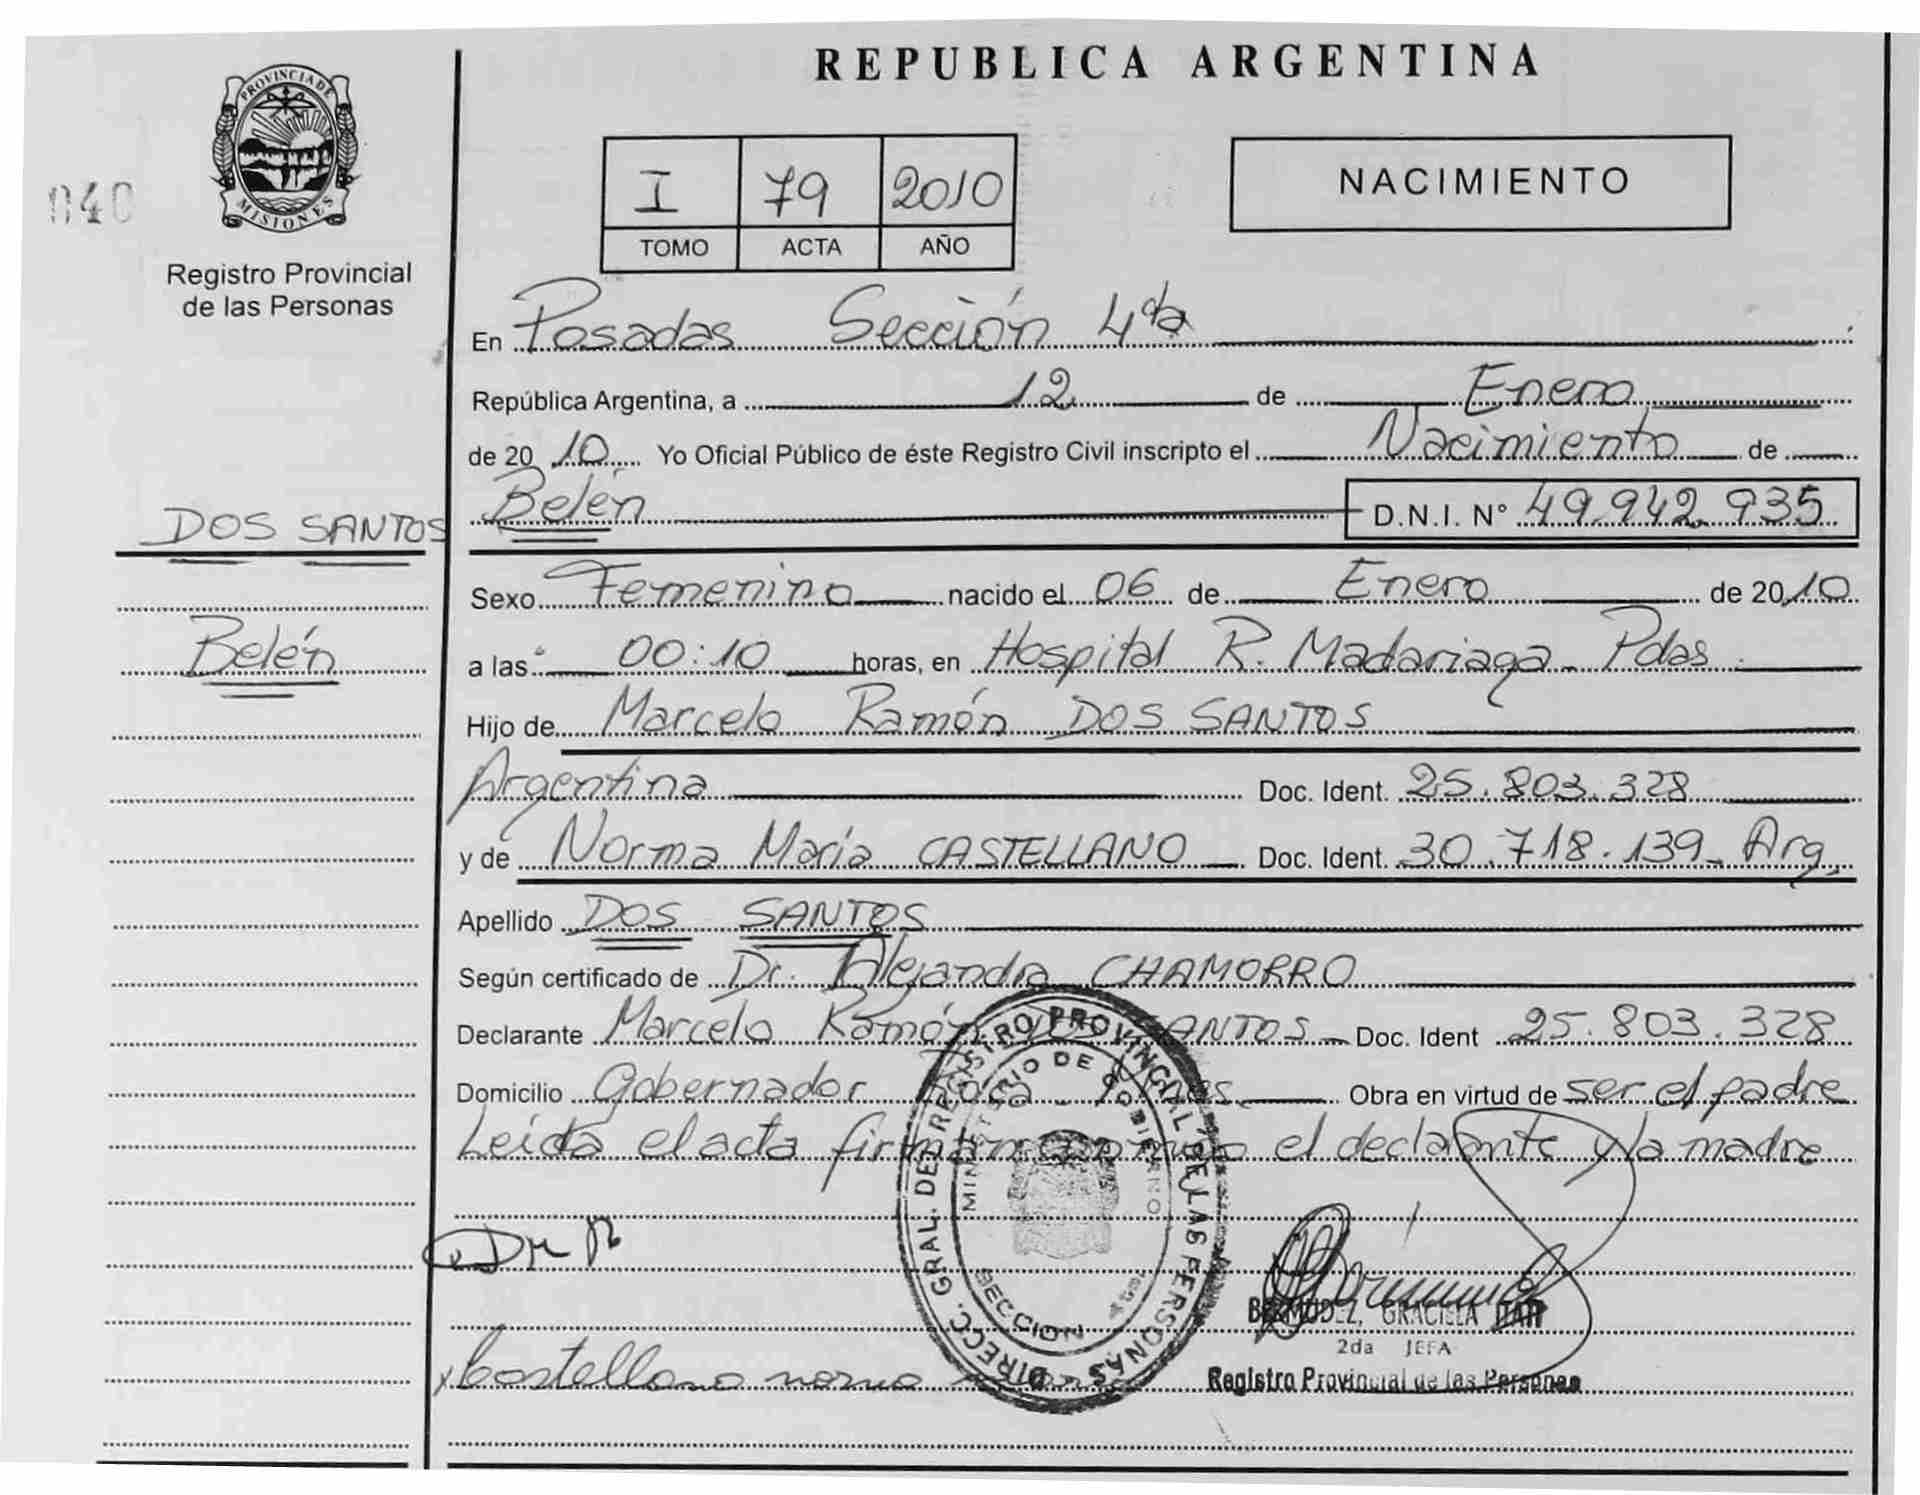 REPUBLICA ARGENTINA
PROVINCIA DE
MISIONES
040
Registro Provincial
de las Personas
I 79 2010
TOMO ACTA AÑO
NACIMIENTO
En Posadas Sección 4ta
República Argentina, a 12 de Enero
de 2010 Yo Oficial Público de éste Registro Civil inscripto el Nacimiento de
Belén D.N.I. N° 49.942.935
DOS SANTOS
Belén
Sexo Femenino nacido el 06 de Enero de 2010
a las 00:10 horas, en Hospital R. Madariaga - Pdas.
Hijo de Marcelo Ramón DOS SANTOS
Argentina Doc. Ident. 25.803.328
y de Norma María CASTELLANO Doc. Ident. 30.718.139 - Arg.
Apellido DOS SANTOS
Según certificado de Dr. Alejandra CHAMORRO
Declarante Marcelo Ramón DOS SANTOS - Doc. Ident 25.803.328
Domicilio Gobernador Roca Obra en virtud de ser el padre
Leída el acta firman conmigo el declarante y la madre
DIRECC. GRAL. DEL REGISTRO PROVINCIAL DE LAS PERSONAS
MINISTERIO DE GOBIERNO
SECCION
BERMUDEZ, GRACIELA
2da JEFA
Registro Provincial de las Personas
x Castellano norma